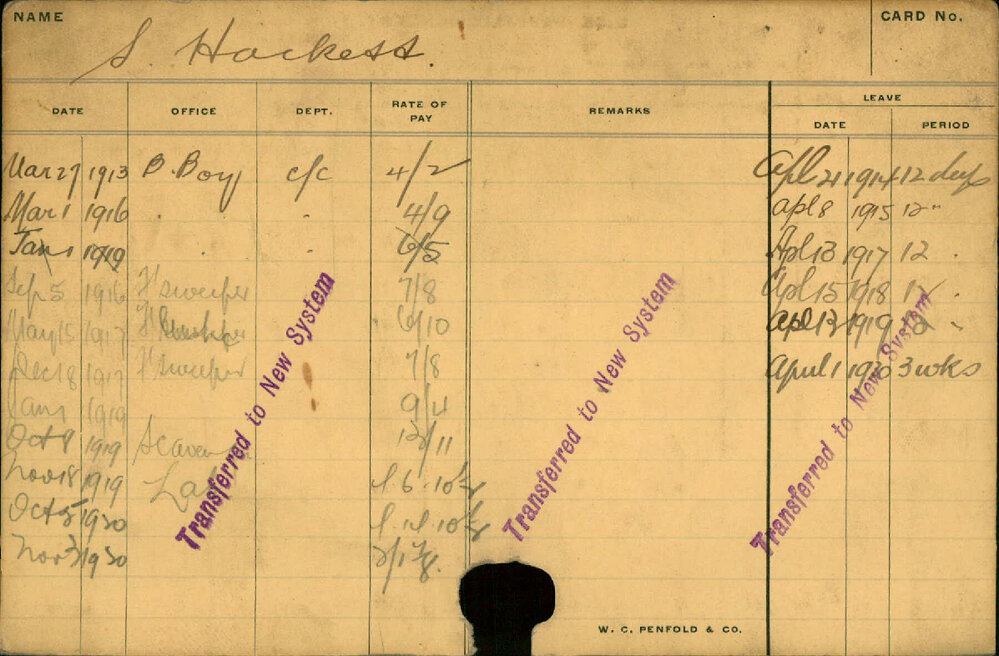 NAME
CARD No.
S. Hackett.
DATE OFFICE DEPT. RATE OF PAY REMARKS LEAVE
DATE PERIOD
Mar 27 1913 B. Boy c/c 4/2 Apl 21 1914 12 days
Mar 1 1916 . . 4/9 apl 8 1915 12 "
Jan 1 1919 . . 6/5 Apl 13 1917 12 .
Sep 5 1916 sweeper 7/8 Apl 15 1918 12 .
May 15 1917 6/10 apl 13 1919 12 "
Dec 18 1917 sweeper 7/8 April 1 1920 3 wks
Jan 1 1919 9/4
Oct 9 1919 12/11
Nov 18 1919 Lab
Oct 5 1920
Nov 1920
Transferred to New System
Transferred to New System
Transferred to New System
W. C. PENFOLD & CO.